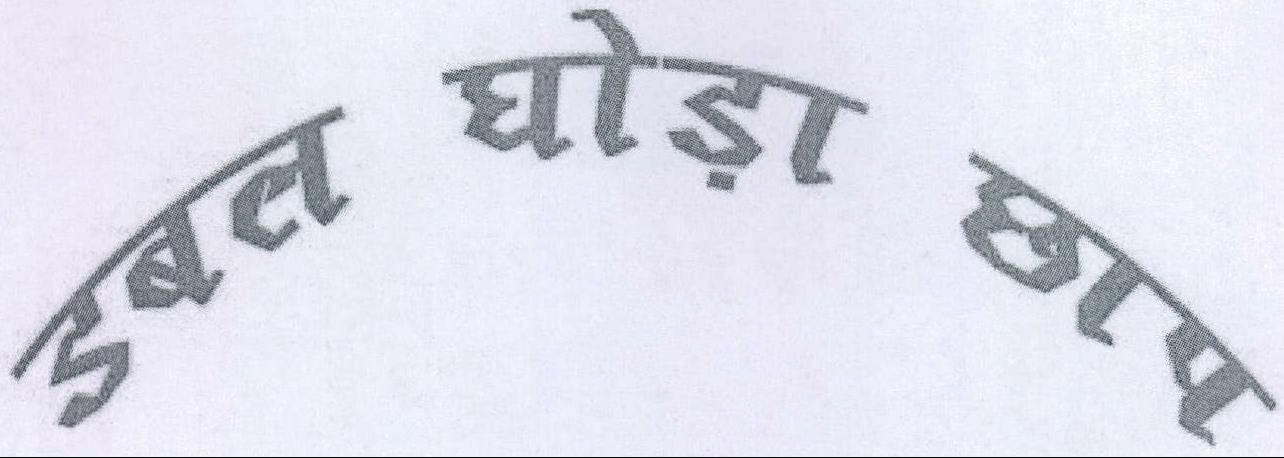 डबल घोड़ा छाप